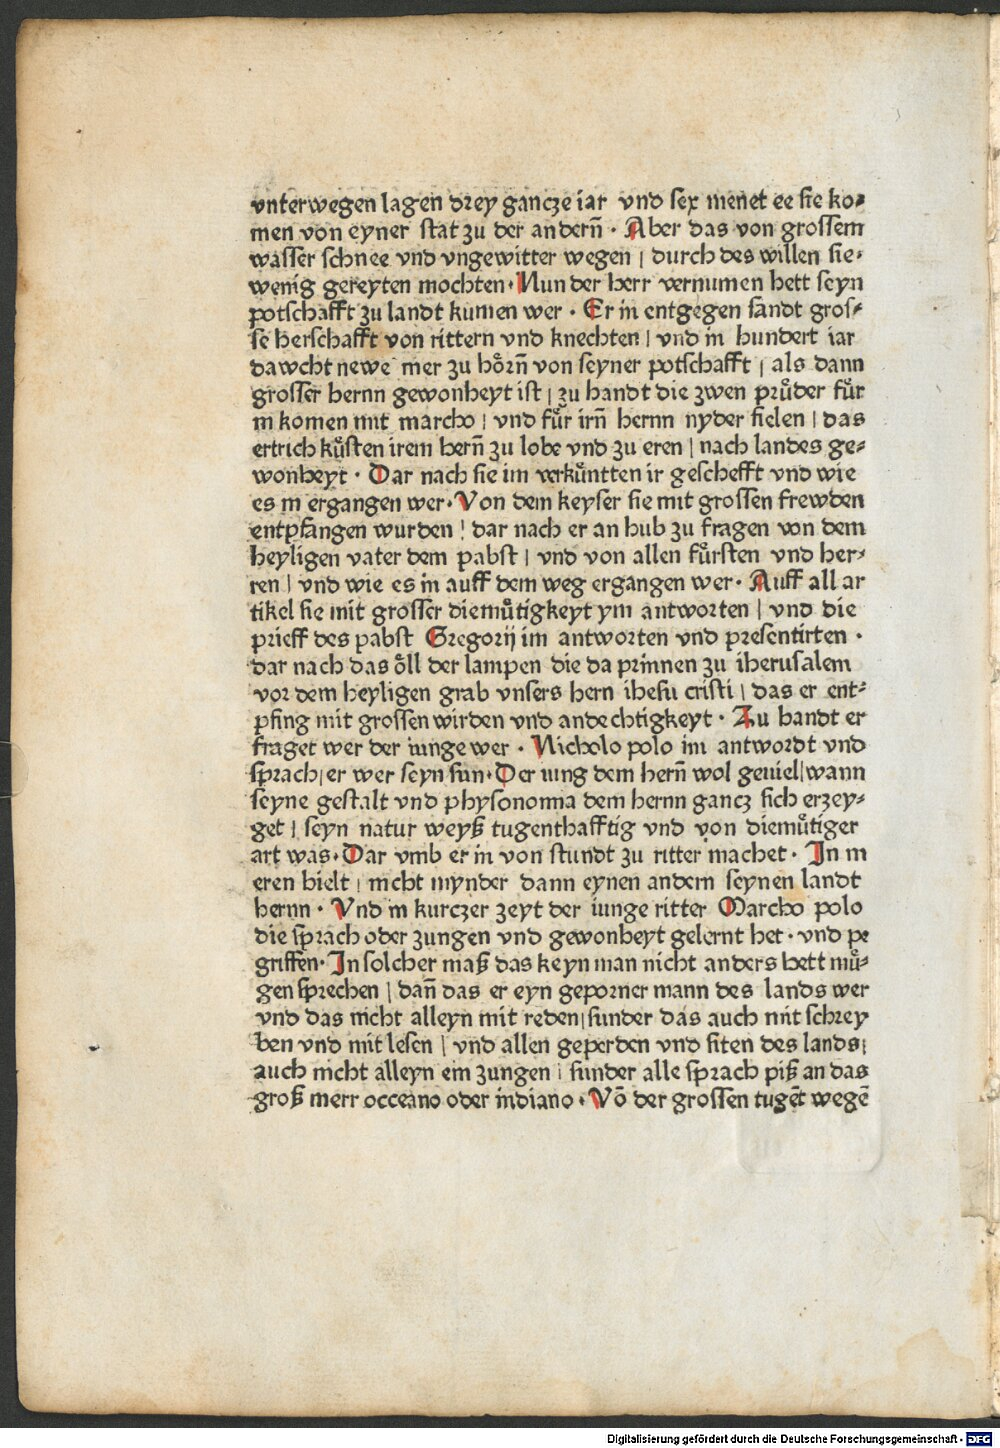 vnterwegen lagen drey gancze iar vnd sex menet ee sie ko⸗
men von eyner stat zu der andern̄ · Aber das von grossem
wasser schnee vnd vngewitter wegen | durch des willen sie⸗
wenig gereyten mochten · Nun der herr vernumen hett seyn
potschafft zu landt kumen wer · Er in entgegen sandt gros⸗
se herschafft von rittern vnd knechten | vnd in hundert iar
dawcht newe mer zu hoͤrn̄ von seyner potschafft | als dann
grosser hernn gewonheyt ist | zu handt die zwen pruͤder fuͤr
in komen mit marcho | vnd fuͤr irn̄ hernn nyder fielen | das
ertrich kuͤsten irem hern̄ zu lobe vnd zu eren | nach landes ge⸗
wonheyt · Dar nach sie im verkuͤntten ir geschefft vnd wie
es in ergangen wer · Von dem keyser sie mit grossen frewden
entpfangen wurden | dar nach er an hub zu fragen von dem
heyligen vater dem pabst | vnd von allen fuͤrsten vnd her⸗
ren | vnd wie es in auff dem weg ergangen wer · Auff all ar
tikel sie mit grosser diemuͤtigkeyt ym antworten | vnd die
prieff des pabst Gregorij im antworten vnd presentirten ·
dar nach das oͤll der lampen die da prinnen zu iherusalem
vor dem heyligen grab vnsers hern ihesu cristi | das er ent⸗
pfing mit grossen wirden vnd andechtigkeyt · Zu handt er
fraget wer der iunge wer · Nicholo polo im antwordt vnd
sprach | er wer seyn sun · Der iung dem hern̄ wol geuiel | wann
seyne gestalt vnd physonomia dem hernn gancz sich erzey⸗
get | seyn natur weyß tugenthafftig vnd von diemuͤtiger
art was · Dar vmb er in von stundt zu ritter machet · In in
eren hielt | nicht mynder dann eynen andern seynen landt
hernn · Vnd in kurczer zeyt der iunge ritter Marcho polo
die sprach oder zungen vnd gewonheyt gelernt het · vnd pe
griffen · In solcher maß das keyn man nicht anders hett muͤ⸗
gen sprechen | dan̄ das er eyn geporner mann des lands wer
vnd das nicht alleyn mit reden | sunder das auch mit schrey
ben vnd mit lesen | vnd allen geperden vnd siten des lands |
auch nicht alleyn ein zungen | sunder alle sprach piß an das
groß merr occeano oder indiano · Vō der grossen tugēt wegē
Digitalisierung gefördert durch die Deutsche Forschungsgemeinschaft - DFG